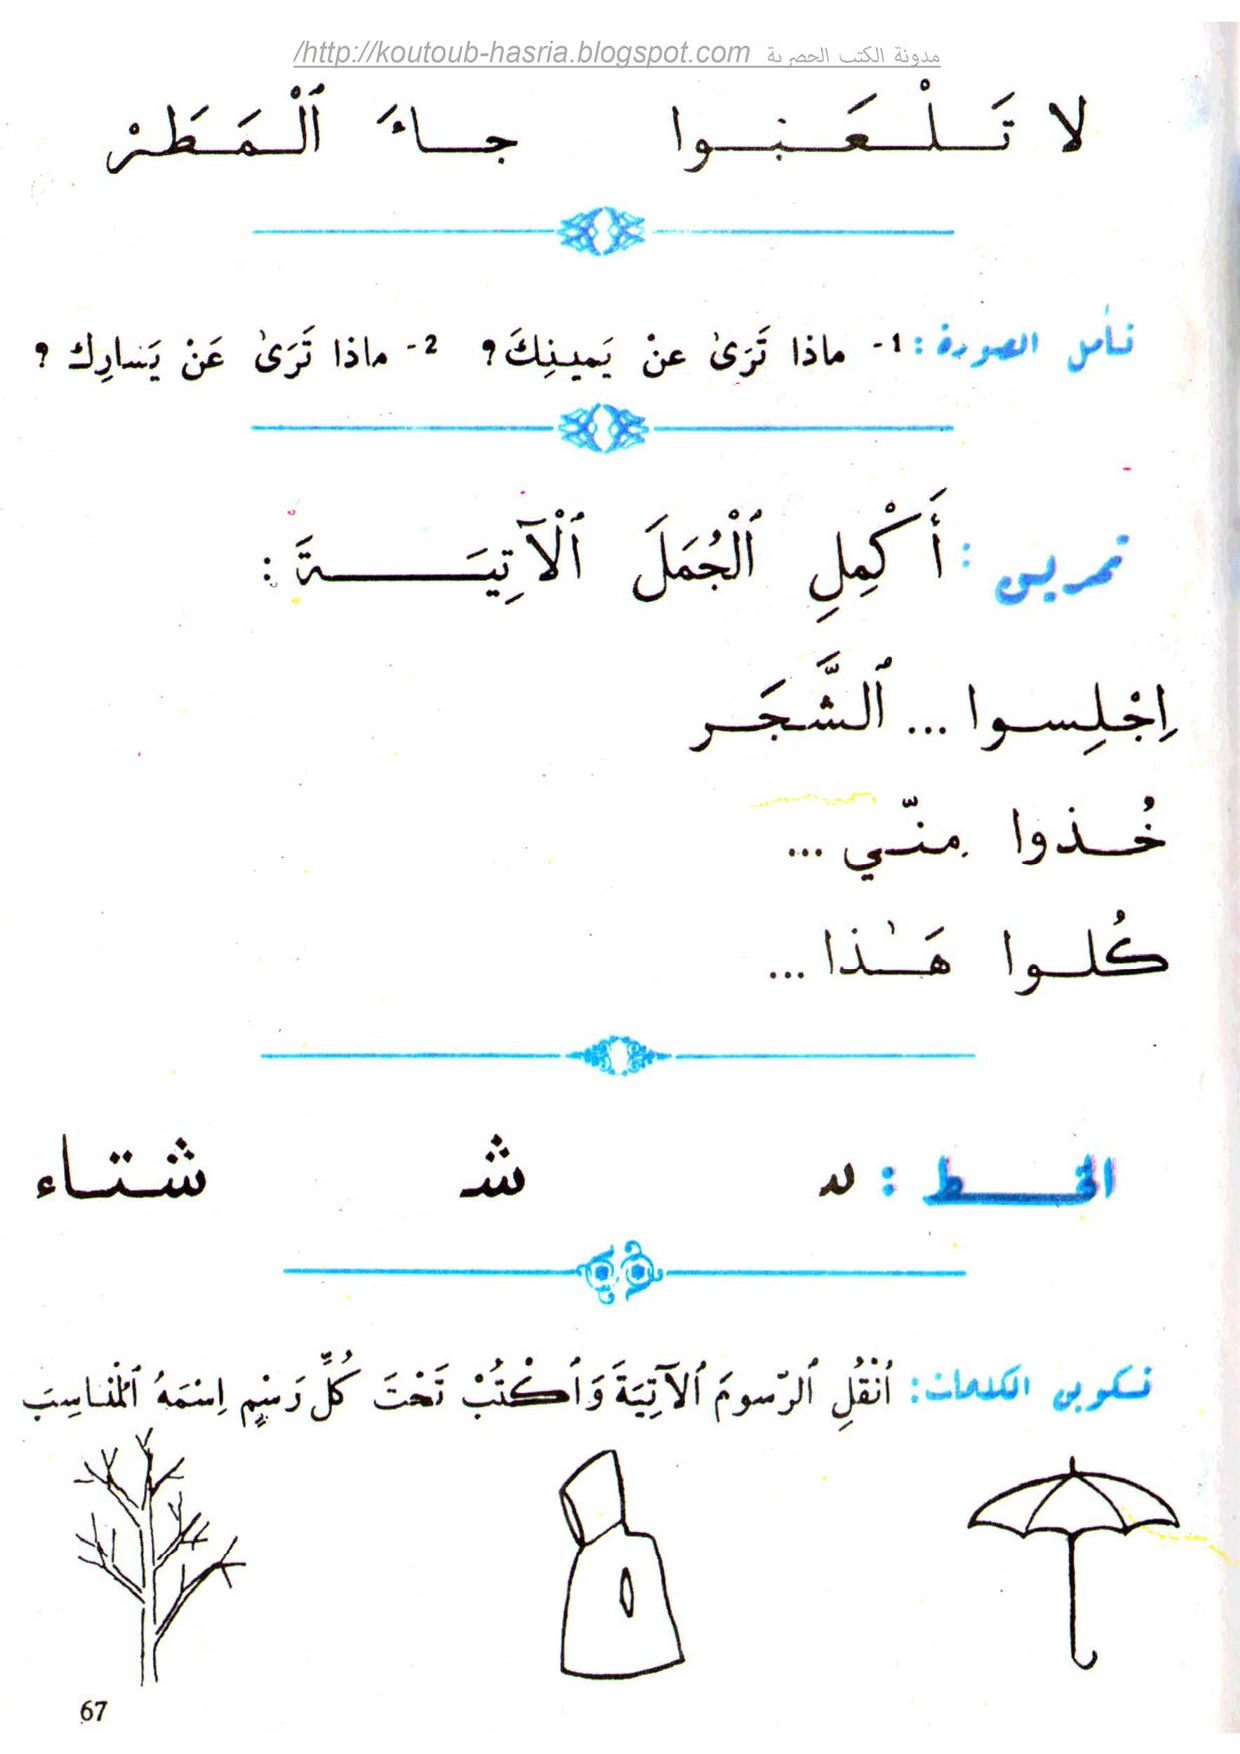 مدونة الكتب الحصرية http://koutoub-hasria.blogspot.com/
لا تَلْعَبوا جاءَ ٱلْمَطَرْ
تأمل الصورة : 1- ماذا تَرَىٰ عنْ يَمينِكَ ؟ 2- ماذا تَرَىٰ عَنْ يَسارِك ؟
تمرين : أَكْمِلِ ٱلْجُمَلَ ٱلْآتِيَةَ :
اِجْلِسوا ... ٱلشَّجَر
خُذوا مِنّي ...
كُلوا هَـٰذا ...
الخط : شـ شتاء
تكوين الكلمات : اُنْقُلِ ٱلرّسومَ ٱلآتِيَةَ وَٱكْتُبْ تَحْتَ كُلِّ رَسْمٍ اِسْمَهُ ٱلْمُناسِبَ
67